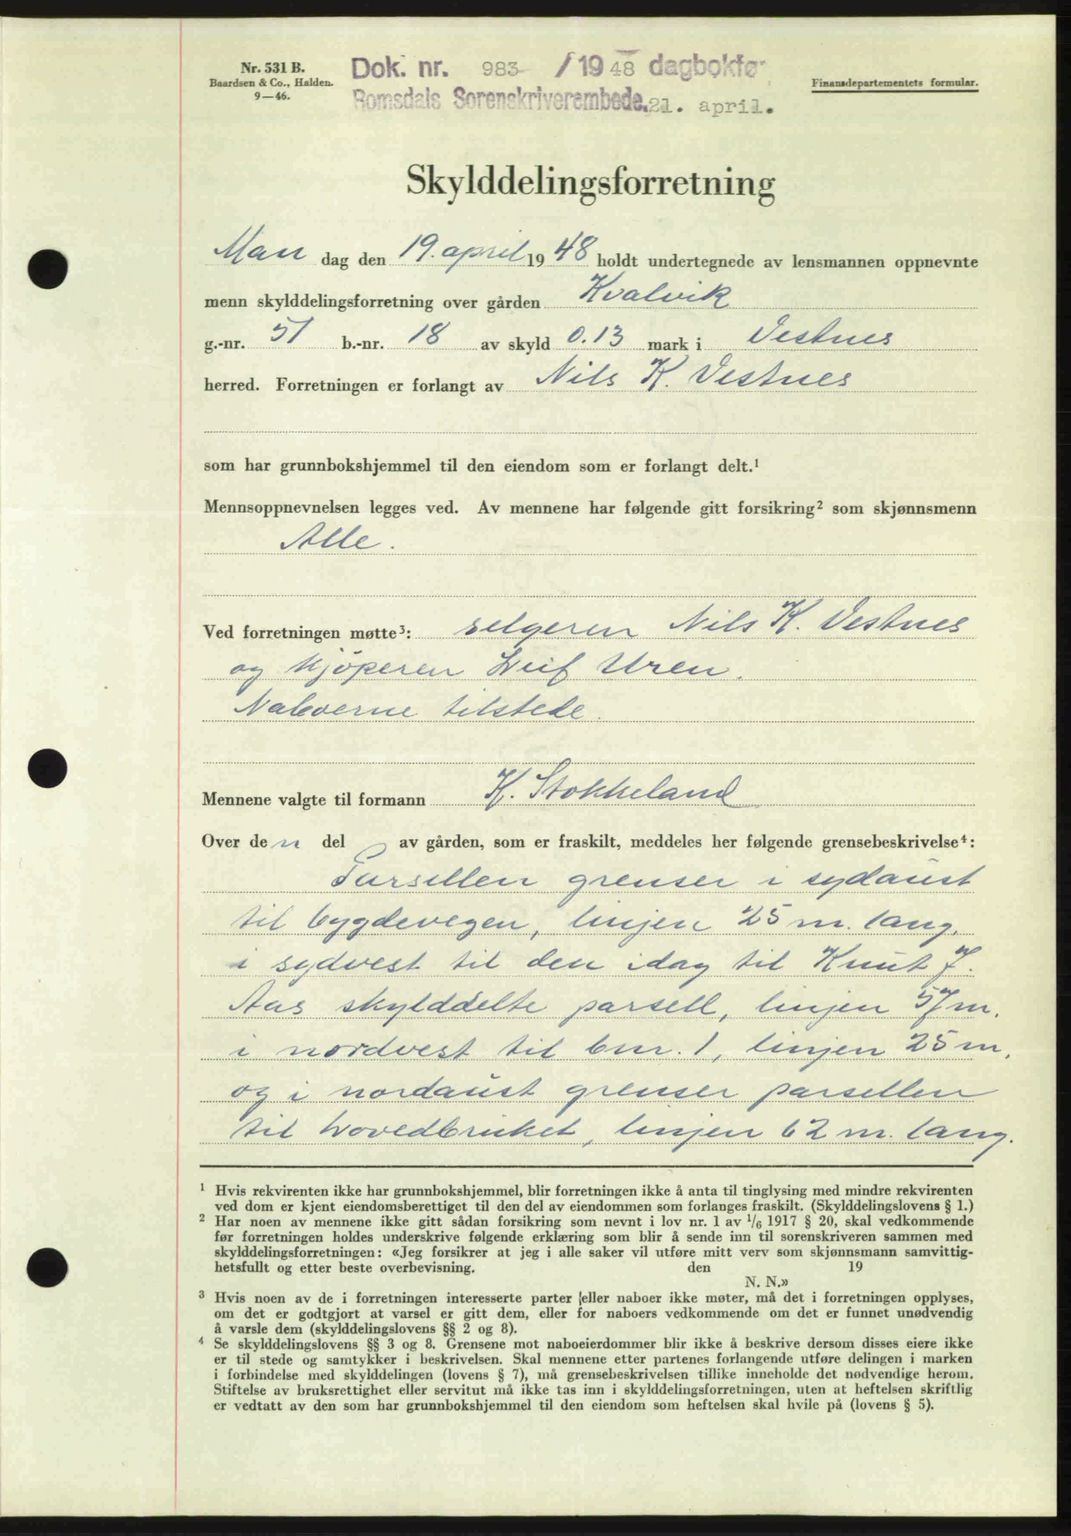 Nr. 531 B.
Baardsen & Co., Halden.
9—46.
Dok. nr. 983 /1948 dagbokfør
Romsdals Sorenskriverembede. 21. april.
Finansdepartementets formular.
Skylddelingsforretning
Man dag den 19. april 1948 holdt undertegnede av lensmannen oppnevnte
menn skylddelingsforretning over gården Kvalvik
g.-nr. 51 b.-nr. 18 av skyld 0.13 mark i Vestnes
herred. Forretningen er forlangt av Nils K. Vestnes
som har grunnbokshjemmel til den eiendom som er forlangt delt.¹
Mennsoppnevnelsen legges ved. Av mennene har følgende gitt forsikring² som skjønnsmenn
Alle.
Ved forretningen møtte³: selgeren Nils K. Vestnes
og kjöperen Leif Uren.
Naboerne tilstede.
Mennene valgte til formann K. Stokkeland
Over den del av gården, som er fraskilt, meddeles her følgende grensebeskrivelse⁴:
Parsellen grenser i sydaust
til bygdevegen, linjen 25 m. lang.
i sydvest til den idag til Knut J.
Aas skylddelte parsell, linjen 57 m.
i nordvest til bnr. 1, linjen 25 m,
og i nordaust grenser parsellen
til hovedbruket, linjen 62 m. lang.
¹ Hvis rekvirenten ikke har grunnbokshjemmel, blir forretningen ikke å anta til tinglysing med mindre rekvirenten
ved dom er kjent eiendomsberettiget til den del av eiendommen som forlanges fraskilt. (Skylddelingslovens § 1.)
² Har noen av mennene ikke gitt sådan forsikring som nevnt i lov nr. 1 av 1/6 1917 § 20, skal vedkommende
før forretningen holdes underskrive følgende erklæring som blir å sende inn til sorenskriveren sammen med
skylddelingsforretningen: «Jeg forsikrer at jeg i alle saker vil utføre mitt verv som skjønnsmann samvittig-
hetsfullt og etter beste overbevisning. den 19
N. N.»
³ Hvis noen av de i forretningen interesserte parter eller naboer ikke møter, må det i forretningen opplyses,
om det er godtgjort at varsel er gitt dem, eller for naboers vedkommende om det er funnet unødvendig
å varsle dem (skylddelingslovens §§ 2 og 8).
⁴ Se skylddelingslovens §§ 3 og 8. Grensene mot naboeierdommer blir ikke å beskrive dersom disses eiere ikke
er til stede og samtykker i beskrivelsen. Skal mennene etter partenes forlangende utføre delingen i marken
i forbindelse med skylddelingen (lovens § 7), må grensebeskrivelsen tillike inneholde det nødvendige herom.
Stiftelse av bruksrettighet eller servitut må ikke tas inn i skylddelingsforretningen, uten at heftelsen skriftlig
er vedtatt av den som har grunnbokshjemmel til den eiendom som heftelsen skal hvile på (lovens § 5).